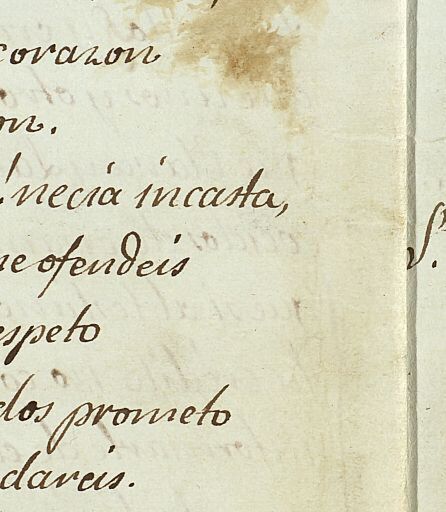 corazon
on.
! necia incasta,
me ofendeis
espeto
dos prometo
dareis.
S.